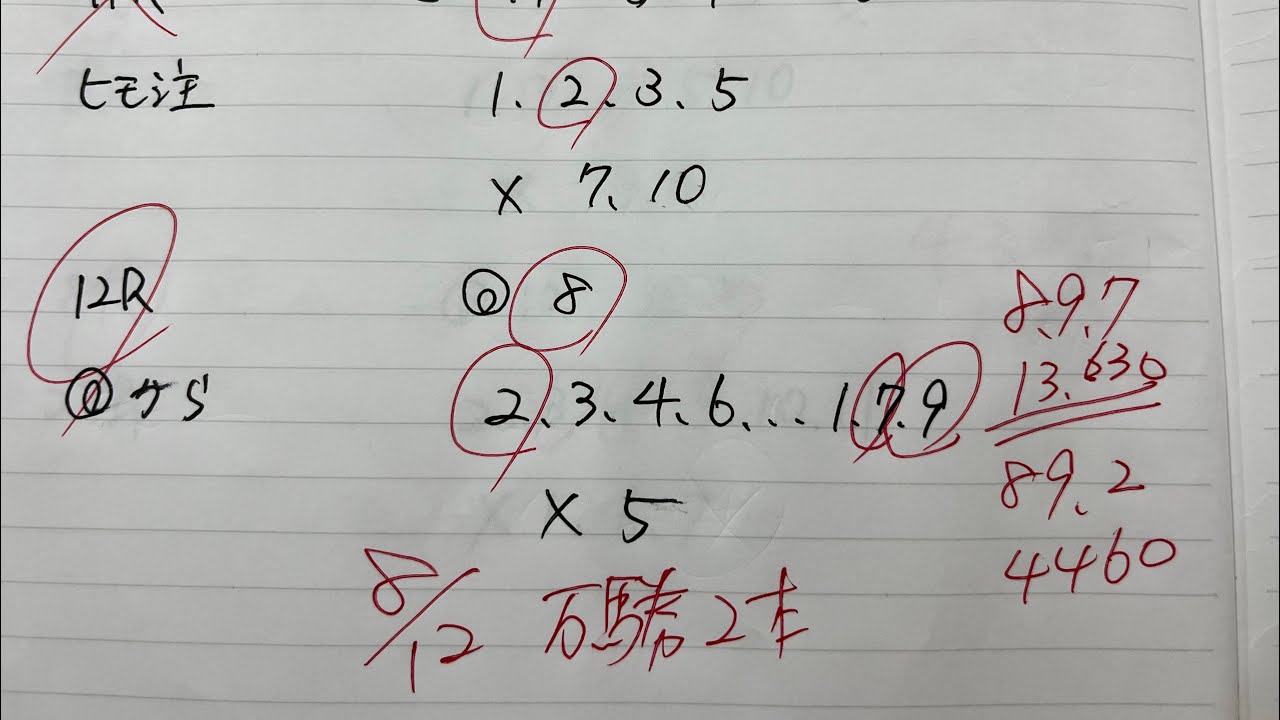 ヒモ注 1.2.3.5
× 7.10
12R ◎ 8
8.9.7
2.3.4.6...1.7.9
13.630
× 5
89.2
4460
8/12 万馬券2本